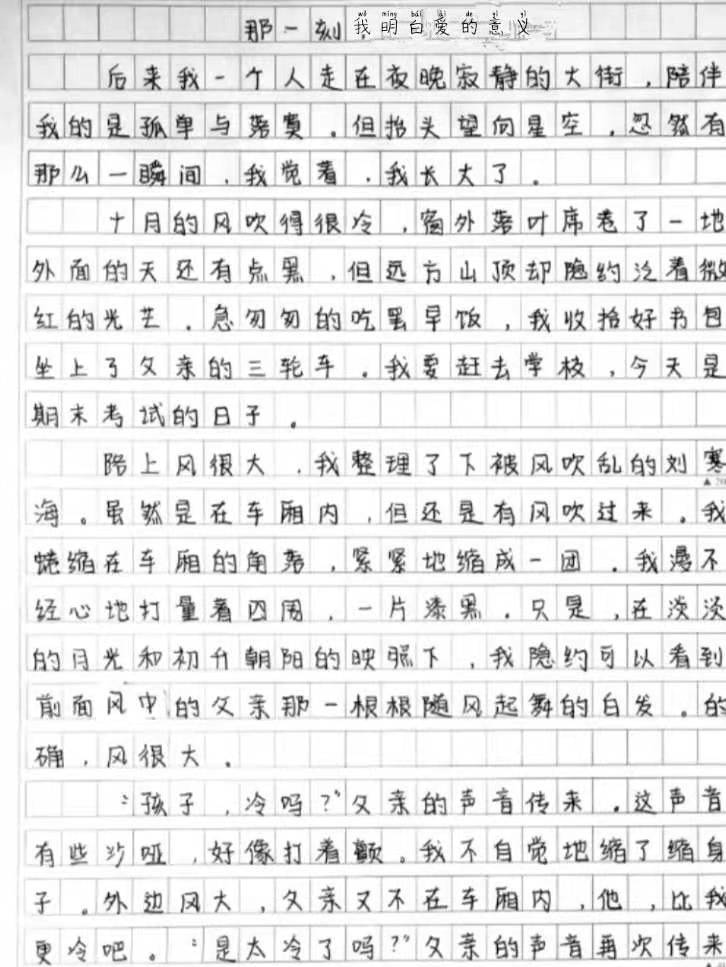 那一刻我明白爱的意义
wǒ míng bái ài de yì yì
后来我一个人走在夜晚寂静的大街，陪伴
我的是孤单与落寞。但抬头望向星空，忽然有
那么一瞬间，我觉着，我长大了。
十月的风吹得很冷，窗外落叶席卷了一地
外面的天还有点黑，但远方山顶却隐约泛着微
红的光芒。急匆匆的吃罢早饭，我收拾好书包
坐上了父亲的三轮车。我要赶去学校，今天是
期末考试的日子。
路上风很大，我整理了下被风吹乱的刘寒
海。虽然是在车厢内，但还是有风吹过来。我
蜷缩在车厢的角落，紧紧地缩成一团。我漫不
经心地打量着四周，一片漆黑。只是，在淡淡
的月光和初升朝阳的映照下，我隐约可以看到
前面风中的父亲那一根根随风起舞的白发。的
确，风很大。
“孩子，冷吗？”父亲的声音传来。这声音
有些沙哑，好像打着颤。我不自觉地缩了缩身
子。外边风大，父亲又不在车厢内，他，比我
更冷吧。“是太冷了吗？”父亲的声音再次传来